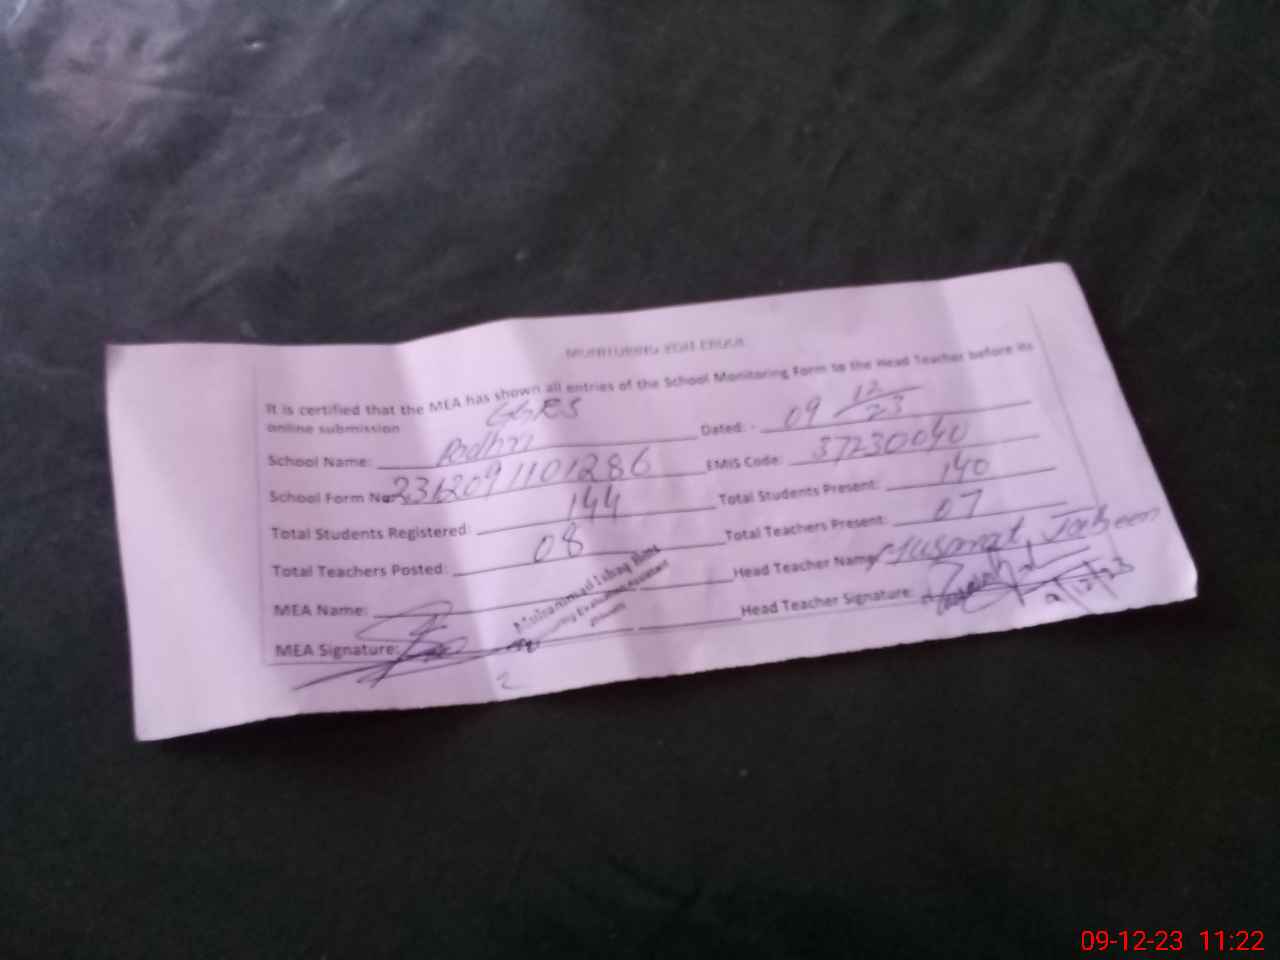 MONITORING
It is certified that the MEA has shown all entries of the School Monitoring Form to the Head Teacher before its
online submission
GGES
School Name: Dated: - 09 12/23
School Form No: 2312091101286 EMIS Code: 37230040
Total Students Registered: 144 Total Students Present: 140
Total Teachers Posted: 08 Total Teachers Present: 07
MEA Name: Head Teacher Name: Musarrat Jabeen
MEA Signature: Head Teacher Signature:
Muhammad Ishaq
Evaluation Assistant
09-12-23 11:22